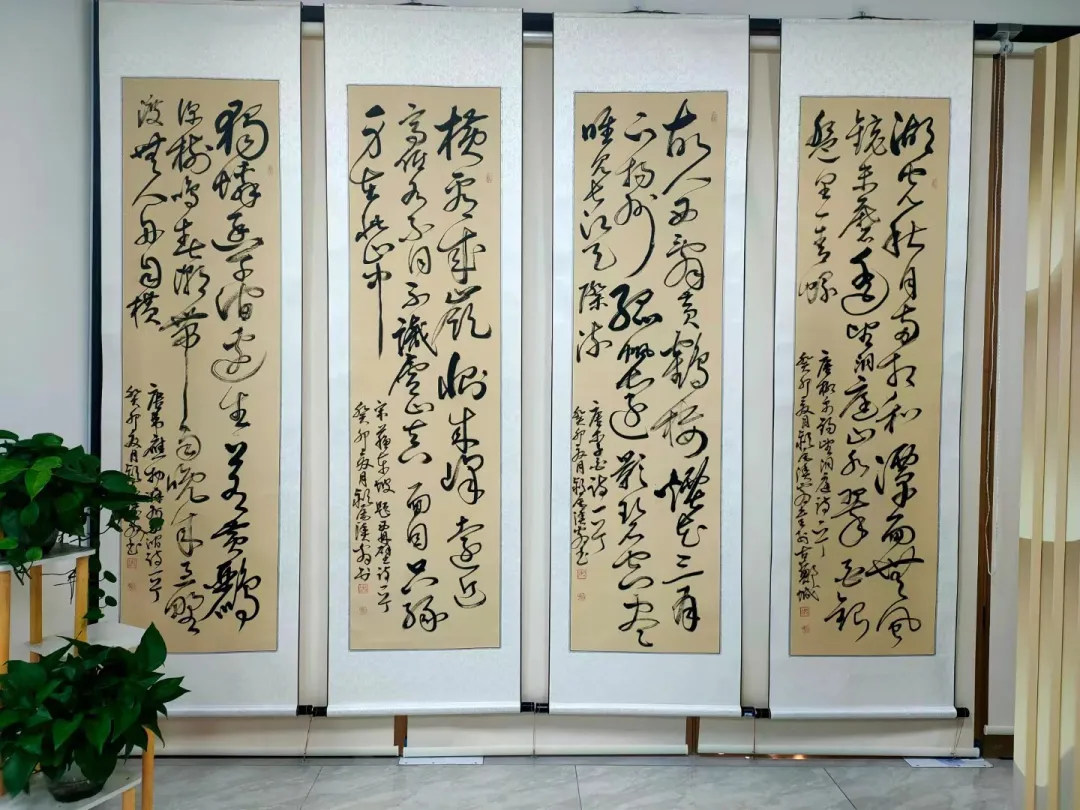 湖光秋月兩相和潭面無風
鏡未磨遥望洞庭山水翠白銀
盤里一青螺
唐劉禹錫望洞庭詩一首
癸卯夏月
故人西辭黄鶴樓煙花三月
下揚州孤帆遠影碧空盡
唯見長江天際流
唐李白詩一首
癸卯夏月
橫看成嶺側成峰遠近
高低各不同不識廬山真面目只緣
身在此山中
宋蘇東坡題西林壁詩一首
癸卯夏月
獨憐幽草澗邊生上有黄鸝
深樹鳴春潮帶雨晚來急野
渡無人舟自橫
唐韋應物滁州西澗詩一首
癸卯夏月